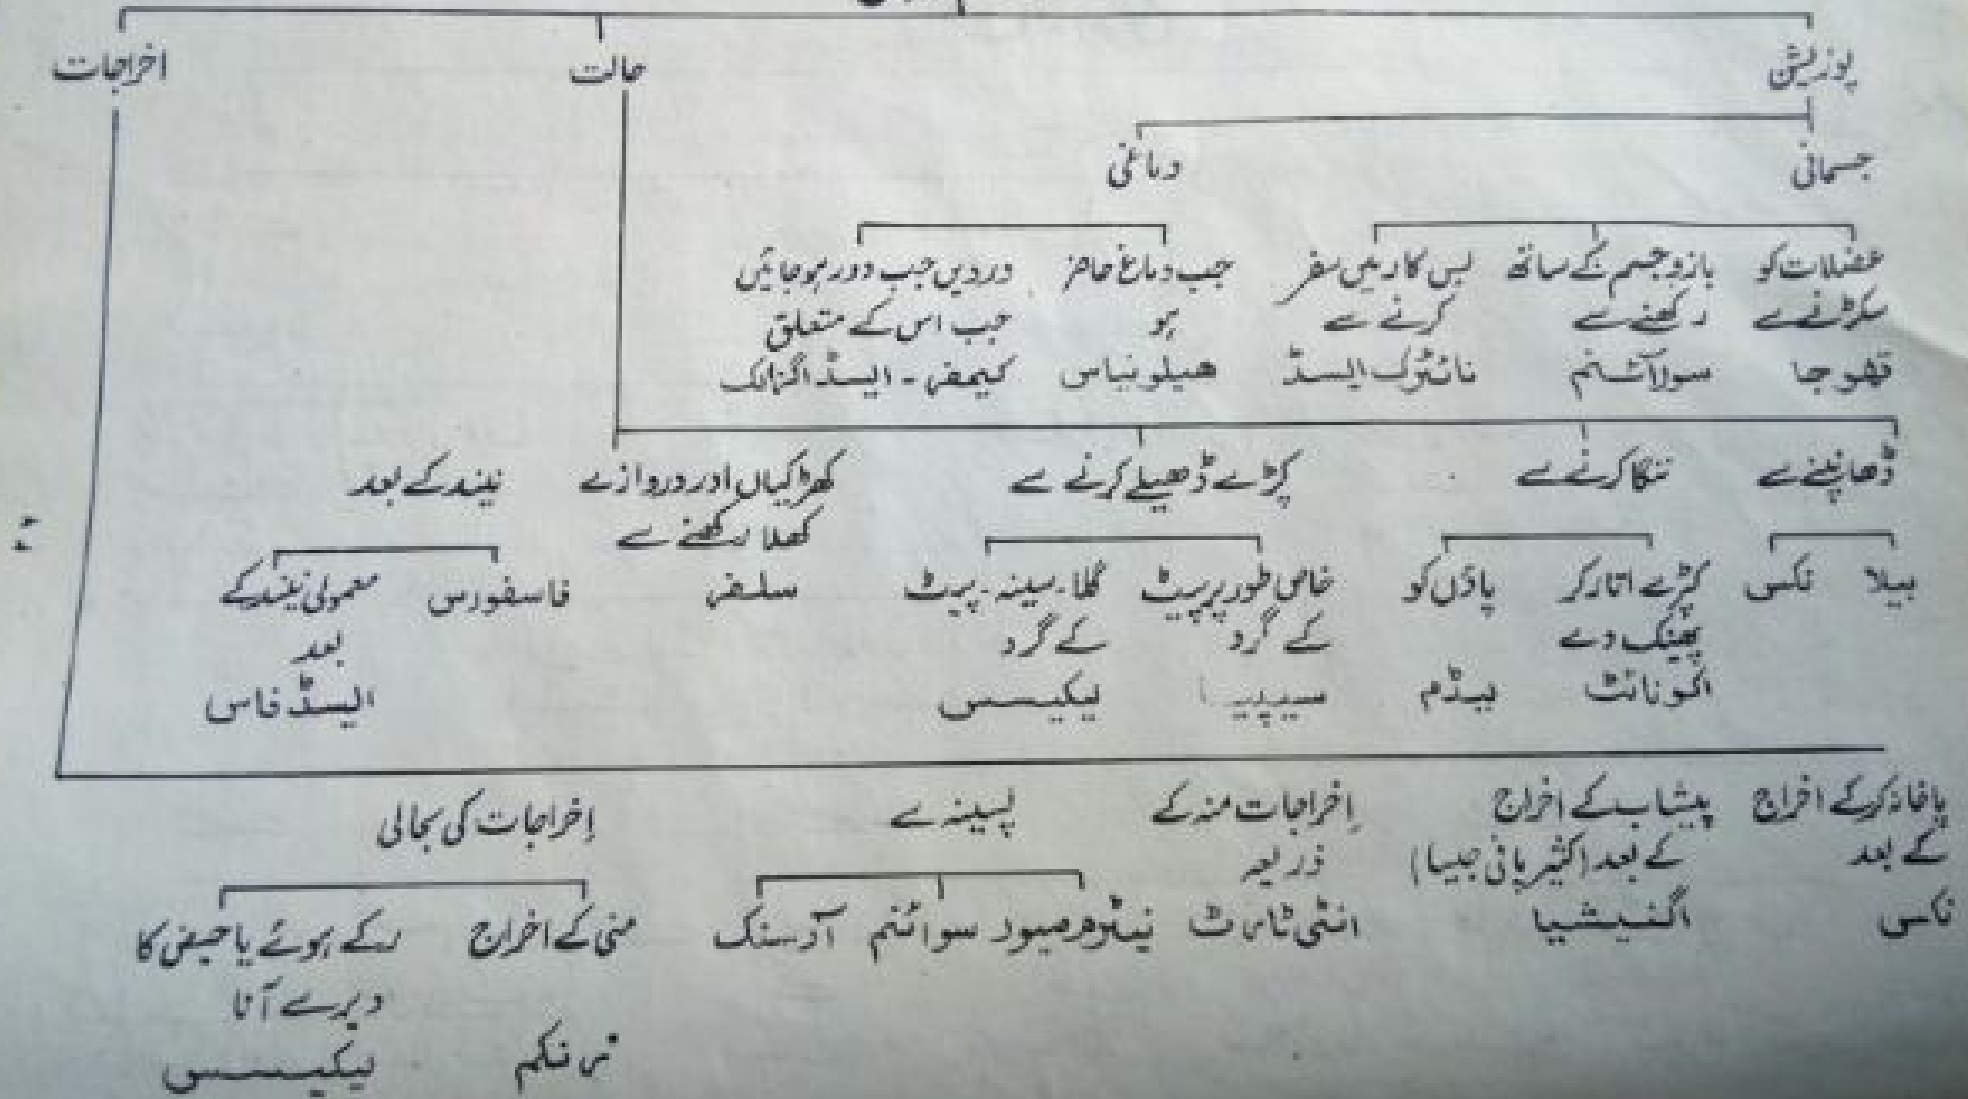 پوزیشن
حالت
اخراجات
جسمانی
دماغی
عضلات کو
سکڑنے سے
تھوجا
بازو جسم کے ساتھ
رکھنے سے
سولانٹم
بس کار میں سفر
کرنے سے
نائٹرک ایسڈ
جب دماغ حاضر
ہو
ھیلونیاس
دردیں جب دور ہو جائیں
جب اس کے متعلق
کیمفر - ایسڈ اگزالک
ڈھانپنے سے
ننگا کرنے سے
کپڑے ڈھیلے کرنے سے
کھڑکیاں اور دروازے
کھلا رکھنے سے
نیند کے بعد
بیلا
نکس
کپڑے اتار کر
پھینک دے
اکونائٹ
پاؤں کو
لیڈم
خاص طور پر پیٹ
کے گرد
سیپیا
گلا - سینہ - پیٹ
کے گرد
لیکیسس
سلفر
فاسفورس
معمولی نیند کے
بعد
ایسڈ فاس
پاخانہ کے اخراج
کے بعد
نکس
پیشاب کے اخراج
کے بعد (اکثیر پانی جیسا)
اگنیشیا
اِخراجات منہ کے
ذریعہ
انٹی ٹارٹ
پسینہ سے
نیٹرم میور
سوائنم
آرسنک
اِخراجات کی بحالی
منی کے اخراج
زنکم
رکے ہوئے یا حیض کا
دیر سے آنا
لیکیسس